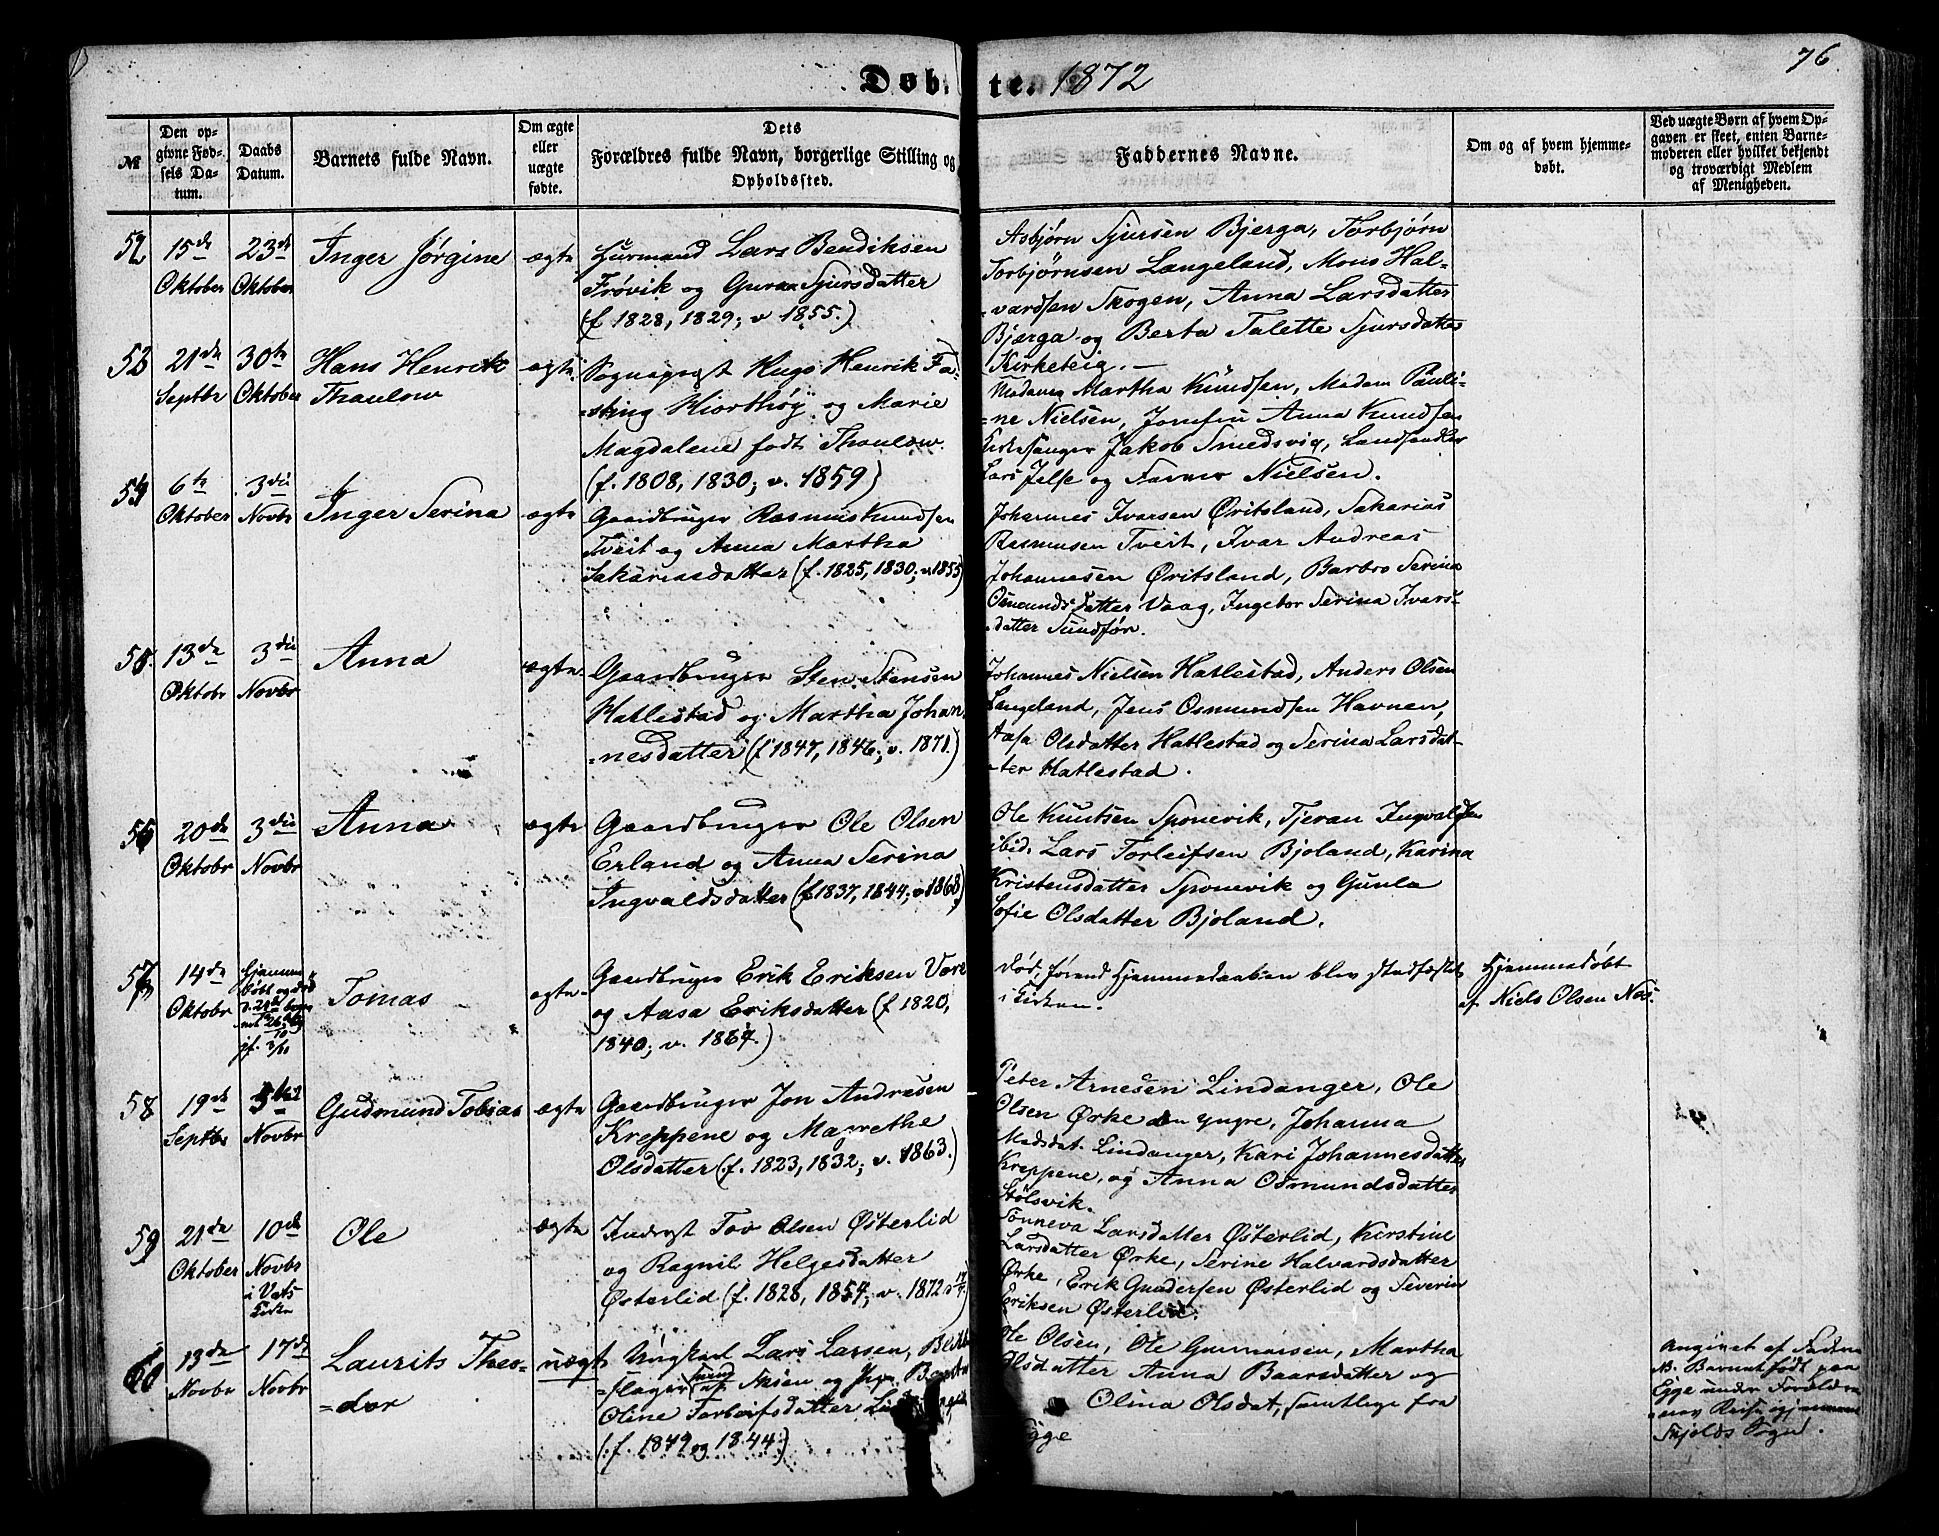 76.
Døbte. 1872
№
Den opgivne Fødsels Datum.
Daabs Datum.
Barnets fulde Navn.
Om ægte eller uægte fødte.
Dets Forældres fulde Navn, borgerlige Stilling og Opholdssted.
Faddernes Navne.
Om og af hvem hjemmedøbt.
Ved uægte Børn af hvem Opgaven er skeet, enten Barnemoderen eller hvilket bekjendt og troværdigt Medlem af Menigheden.
52
15de Oktober
23de Oktober
Inger Jørgine
ægte
Huusmand Lars Bendiksen
Frøvik og Guroa Sjursdatter
(f. 1828, 1829; v. 1855.)
Asbjørn Sjursen Bjerga, Torbjørn
Torbjørnsen Langeland, Mons Hal-
vardsen Skogen, Anna Larsdatter
Bjærga og Berta Talette Sjursdatter
Kirketeig.
53
21de Septbr
30te Oktober
Hans Henrik
Thaulow
ægte
Sognepræst Hugo Henrik Fa-
sting Hiorthøy og Marie
Magdalene født Thaulow.
(f. 1808, 1830; v. 1859)
Madame Martha Knudsen, Madam Pauli-
ne Nielsen, Jomfru Anna Knudsen
Kirkesanger Jakob Smedsvig, Landhandler
Lars Jelse og Nielsen.
54
6te Oktober
3die Novbr
Inger Serina
ægte
Gaardbruger Rasmus Knudsen
Tveit og Anna Martha
Sakariasdatter (f. 1825, 1830; v. 1855)
Johannes Ivarsen Øritsland, Sakarias
Rasmusen Tveit, Ivar Andreas
Johannesen Øritsland, Barbro Serina
Osmundsdatter Vaag, Ingebor Serina Ivars-
datter Sundfør.
55.
13de Oktobr
3die Novbr
Anna
ægte
Gaardbruger Sten Stensen
Hatlestad og Martha Johan-
nesdatter (f. 1847, 1846; v. 1871.)
Johannes Nielsen Hatlestad, Anders Olsen
Langeland, Jens Osmundsen Havnen,
Aasa Olsdatter Hatlestad og Serina Larsdat-
ter Hatlestad.
56
20de Oktobr
3die Novbr
Anna
ægte
Gaardbruger Ole Olsen
Erland og Anna Serina
Ingvaldsdatter (f. 1837, 1844; v. 1868)
Ole Knutsen Sponevik, Tjeran Ingvaldsen
ibid. Lars Torleifsen Bjoland, Karina
Kristensdatter Sponevik og Gunla
Sofie Olsdatter Bjoland.
57
14de Oktobr
Tomas
ægte
Gaardbruger Erik Eriksen Vore
og Aasa Eriksdatter (f. 1820,
1840; v. 1864.)
Død, førend Hjemmedaaben blev stadfæstet
i Kirken.
Hjemmedøbt
af Niels Olsen Næs.
58
19de Septbr
3die Novbr
Gudmund Tobias
ægte
Gaardbruger Jon Andresen
Kreppene og Marethe
Olsdatter (f. 1823, 1832; v. 1863.)
Peter Arnesen Lindanger, Ole
Olsen Ørke den yngre, Johanna
Madsdat. Lindanger, Kari Johannesdatter
Kreppene, og Anna Osmundsdatter
Stølsvik.
59
21de Oktober
10de Novbr i Vats Kirke
Ole
ægte
Inderst Tov Olsen Østerlid
og Ragnil Helgesdatter
Østerlid (f. 1828, 1854; v. 1872
Sønneva Larsdatter Østerlid, Kirstine
Larsdatter Ørke, Serine Halvardsdatter
Ørke, Erik Gundersen Østerlid og Severin
Eriksen Østerlid.
60
13de Novbr
17de Novbr
Laurits Theo-
dor
uægte
Ungkarl Lars Larsen,
og Pige
Oline Torbeifsdatter
(f. 1849 og 1844.)
Ole Olsen, Ole Gunnarsen, Martha
Olsdatter Anna Baarsdatter og
Olina Olsdat, samtlige fra
Egge
Angivet af Faderen
NB. Barnet født paa
Egge under Foræld-
renes Reise gjennem
Skjolds Sogn.